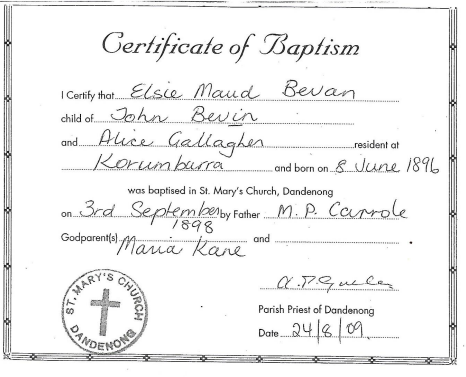 Certificate of Baptism
I Certify that Elsie Maud Bevan
child of John Bevin
and Alice Gallagher resident at
Korumburra and born on 8 June 1896
was baptised in St. Mary's Church, Dandenong
on 3rd September by Father M. P. Carrole
1898
Godparent(s) Maria Kane and
Parish Priest of Dandenong
Date 24/8/09.
ST. MARY'S CHURCH
DANDENONG